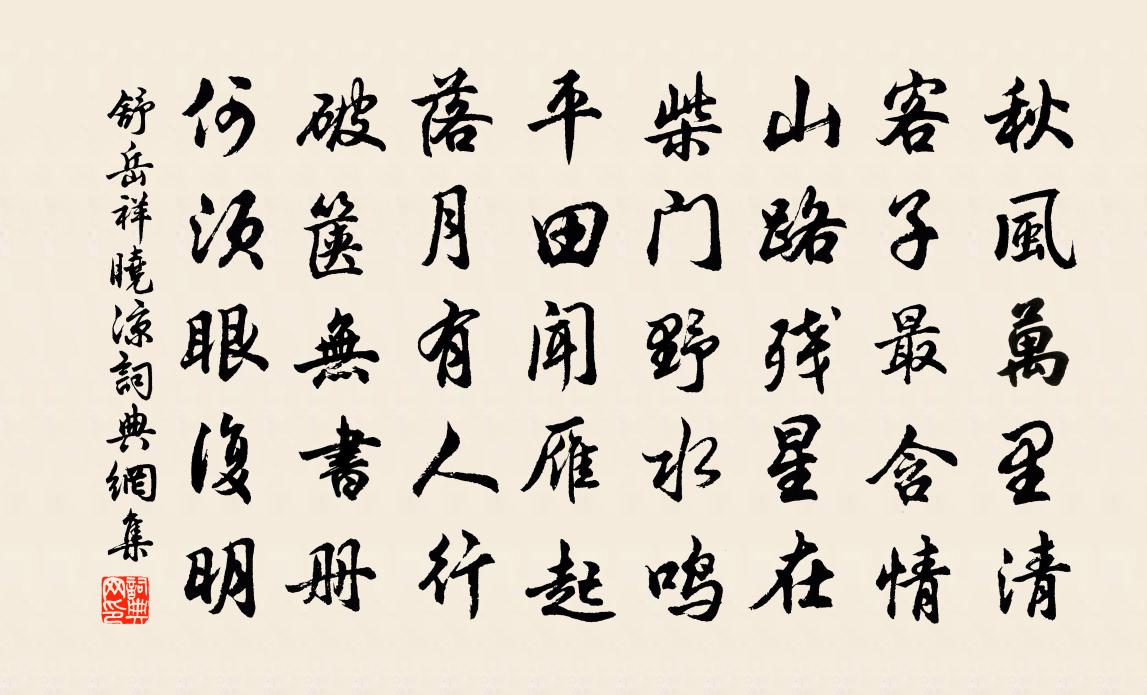 秋風萬里清
客子最含情
山路残星在
柴门野水鸣
平田闻雁起
落月有人行
破箧無書册
何须眼復明
舒岳祥曉凉詞典網集
詞典网印